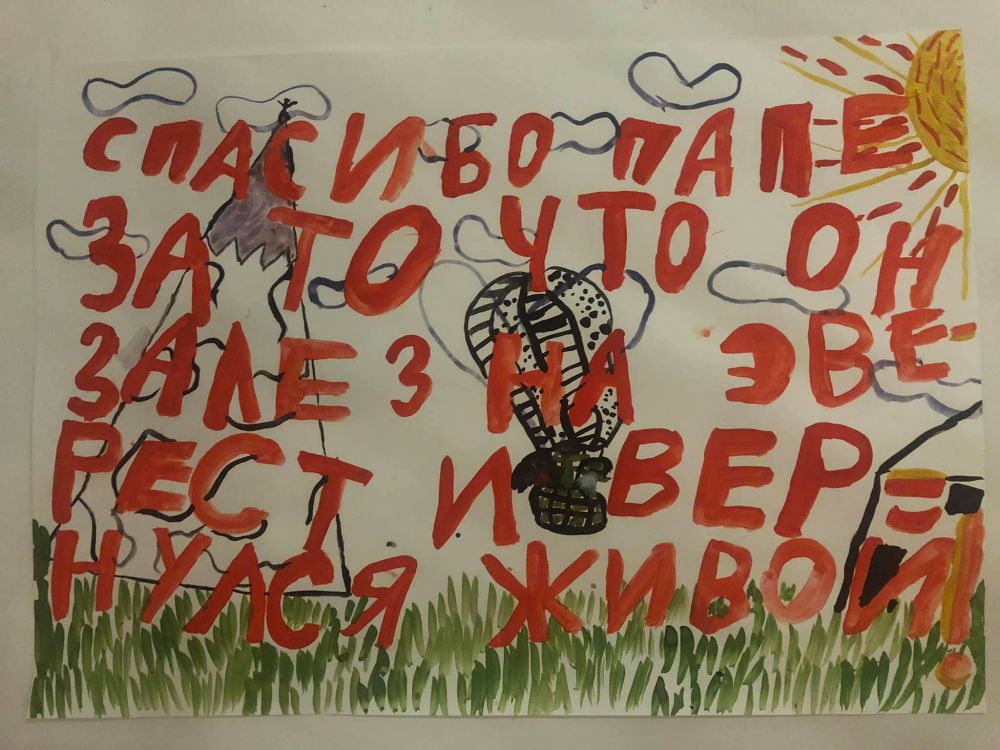 СПАСИБО ПАПЕ
ЗА ТО ЧТО ОН
ЗАЛЕЗ НА ЭВЕ-
РЕСТ И ВЕР=
НУЛСЯ ЖИВОЙ!